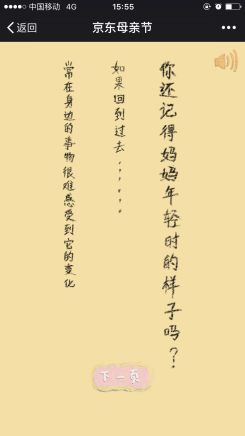 中国移动 4G
15:55
返回
京东母亲节
你还记得妈妈年轻时的样子吗?
如果回到过去......
常在身边的事物很难感受到它的变化
下一页